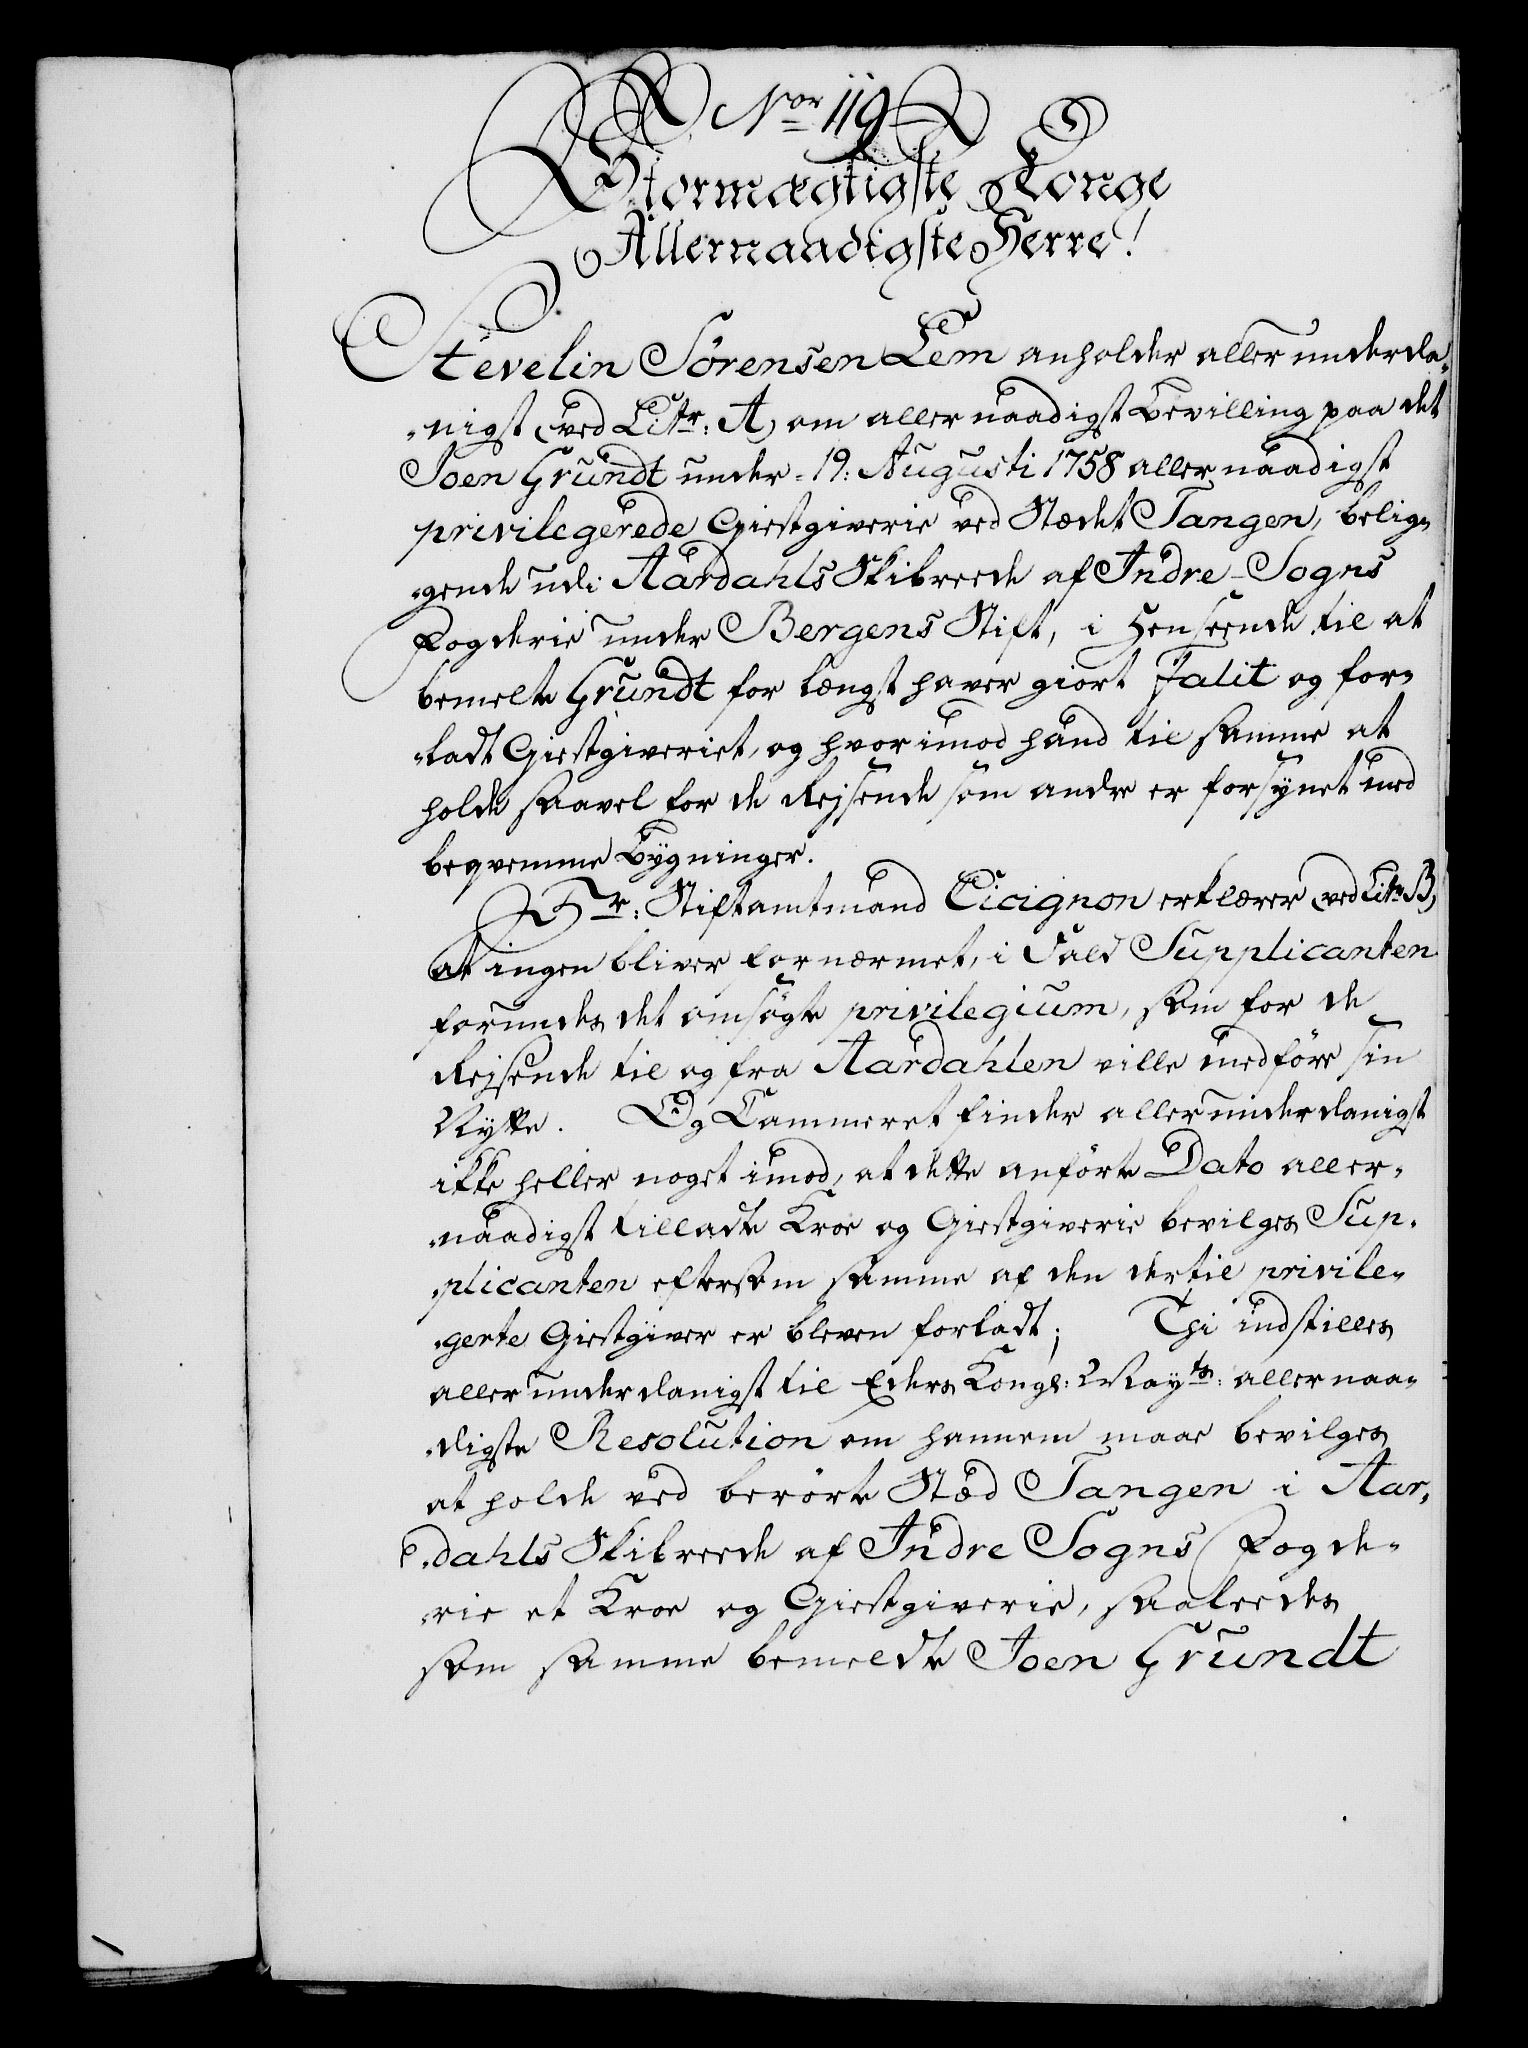 Nor 119
Stormægtigste Konge
Allernaadigste Herre!
Stevelin Sörensen Lem anholder allerunderda-
-nigst (ved Litr: A) om allernaadigst Bevilling paa det
Joen Grundt under 19: Augusti 1758 allernaadigst
privilegerede Giestgiverie ved Stædet Tangen, belig-
-gende udi Aardahls Skibreede af Indre-Sogns
Fogderie under Bergens Stift, i Henseende til at
bemelte Grundt for længst haver giort Falit og for-
-ladt Giestgiveriet, og hvorimod hand til samme at
holde saavel for de Rejsende som andre er forsynet med
beqvemme Bygninger.
Hr: Stiftamtmand Cicignon erklærer (ved Litr B)
at ingen bliver fornærmet, i Fald Supplicanten
forundes det omsögte privilegium, som for de
Rejsende til og fra Aardahlen ville medföre sin
Nytte. Og Cammeret finder allerunderdanigst
ikke heller noget imod, at dette anförte Dato aller-
-naadigst tilladte Kroe og Giestgiverie bevilges Sup-
-plicanten eftersom samme af den dertil privile-
-gerte Giestgiver er bleven forladt; Thi indstilles
allerunderdanigst til Eders Kongl: Mayts: allernaa-
-digste Resolution om hannem maae bevilges
at holde ved berörte Stæd Tangen i Aar-
-dahls Skibreede af Indre Sogns Fogde-
-rie et Kroe og Giestgiverie, saaleedes
som samme bemeldte Joen Grundt